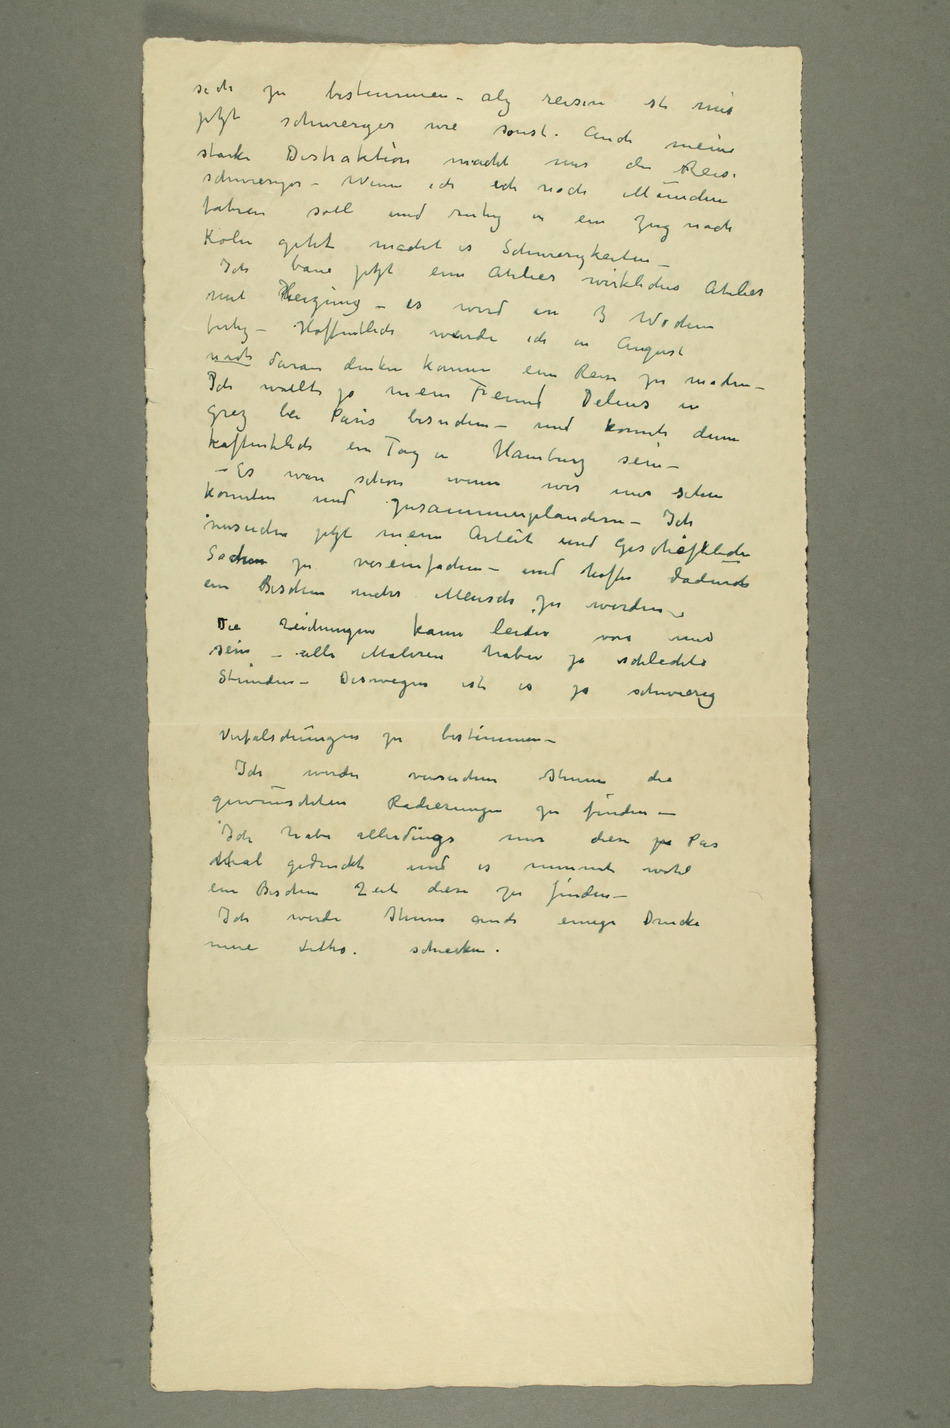 sich zu bestimmen – alz reisen ist mir
jetzt schwieriger wie sonst. Auch meine
starke Distraktion macht mir die Reise
schwieriger – Wenn ich ich nach München
fahren soll und ruhig in ein Zug nach
Köln geht macht es Schwierigkeiten –
Ich baue jetzt eine Atelier wirkliches Atelier
mit Heizung – es wird in 3 Wochen
fertig – Hoffentlich werde ich in August
noch daran denken können eine Reise zu machen –
Ich wollte ja mein Freund Delius in
Grez bei Paris besuchen – und konnte dann
hoffentlich ein Tag in Hamburg sein –
– Es wäre schön wenn wir uns sehen
konnten und zusammenplaudern – Ich
versuche jetzt meine Arbeit und Geschäftliche
Sachen zu vereinfachen – und hoffe dadurch
ein Bischen mehr Mensch zu werden –
Die Zeichnungen kann leider von mir
sein – alle Malern haben ja schlechte
Stunden – Deswegen ist es ja schwierig
Verfalschungen zu bestimmen –
Ich werde versuchen Ihnen die
gewünschten Radierungen zu finden –
Ich habe allerdings nur diese pa Pas
Mal gedruckt und es nimmt wohl
ein Bischen Zeit diese zu finden –
Ich werde Ihnen auch einige Drucke
neue Litho. schicken.